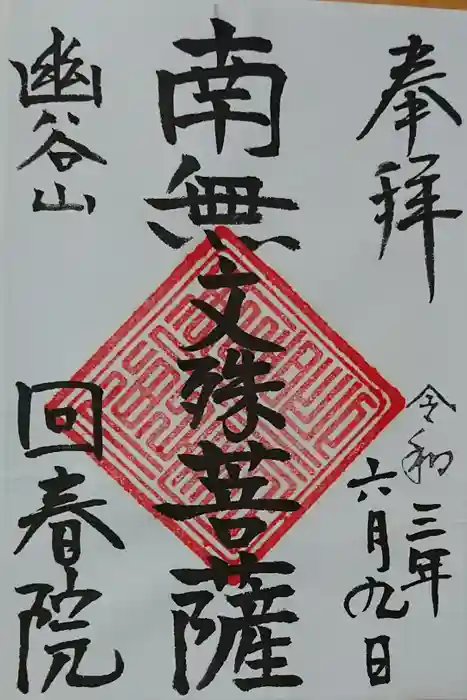 奉拝
令和三年
六月九日
南無文殊菩薩
幽谷山
回春院